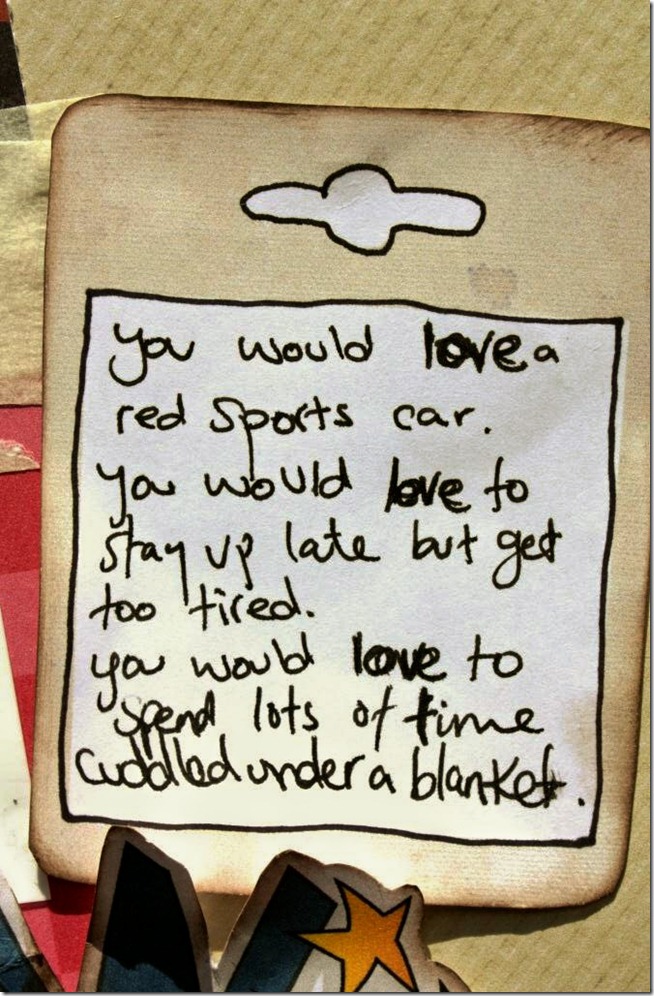 you would love a
red sports car.
you would love to
stay up late but get
too tired.
you would love to
spend lots of time
cuddled under a blanket.